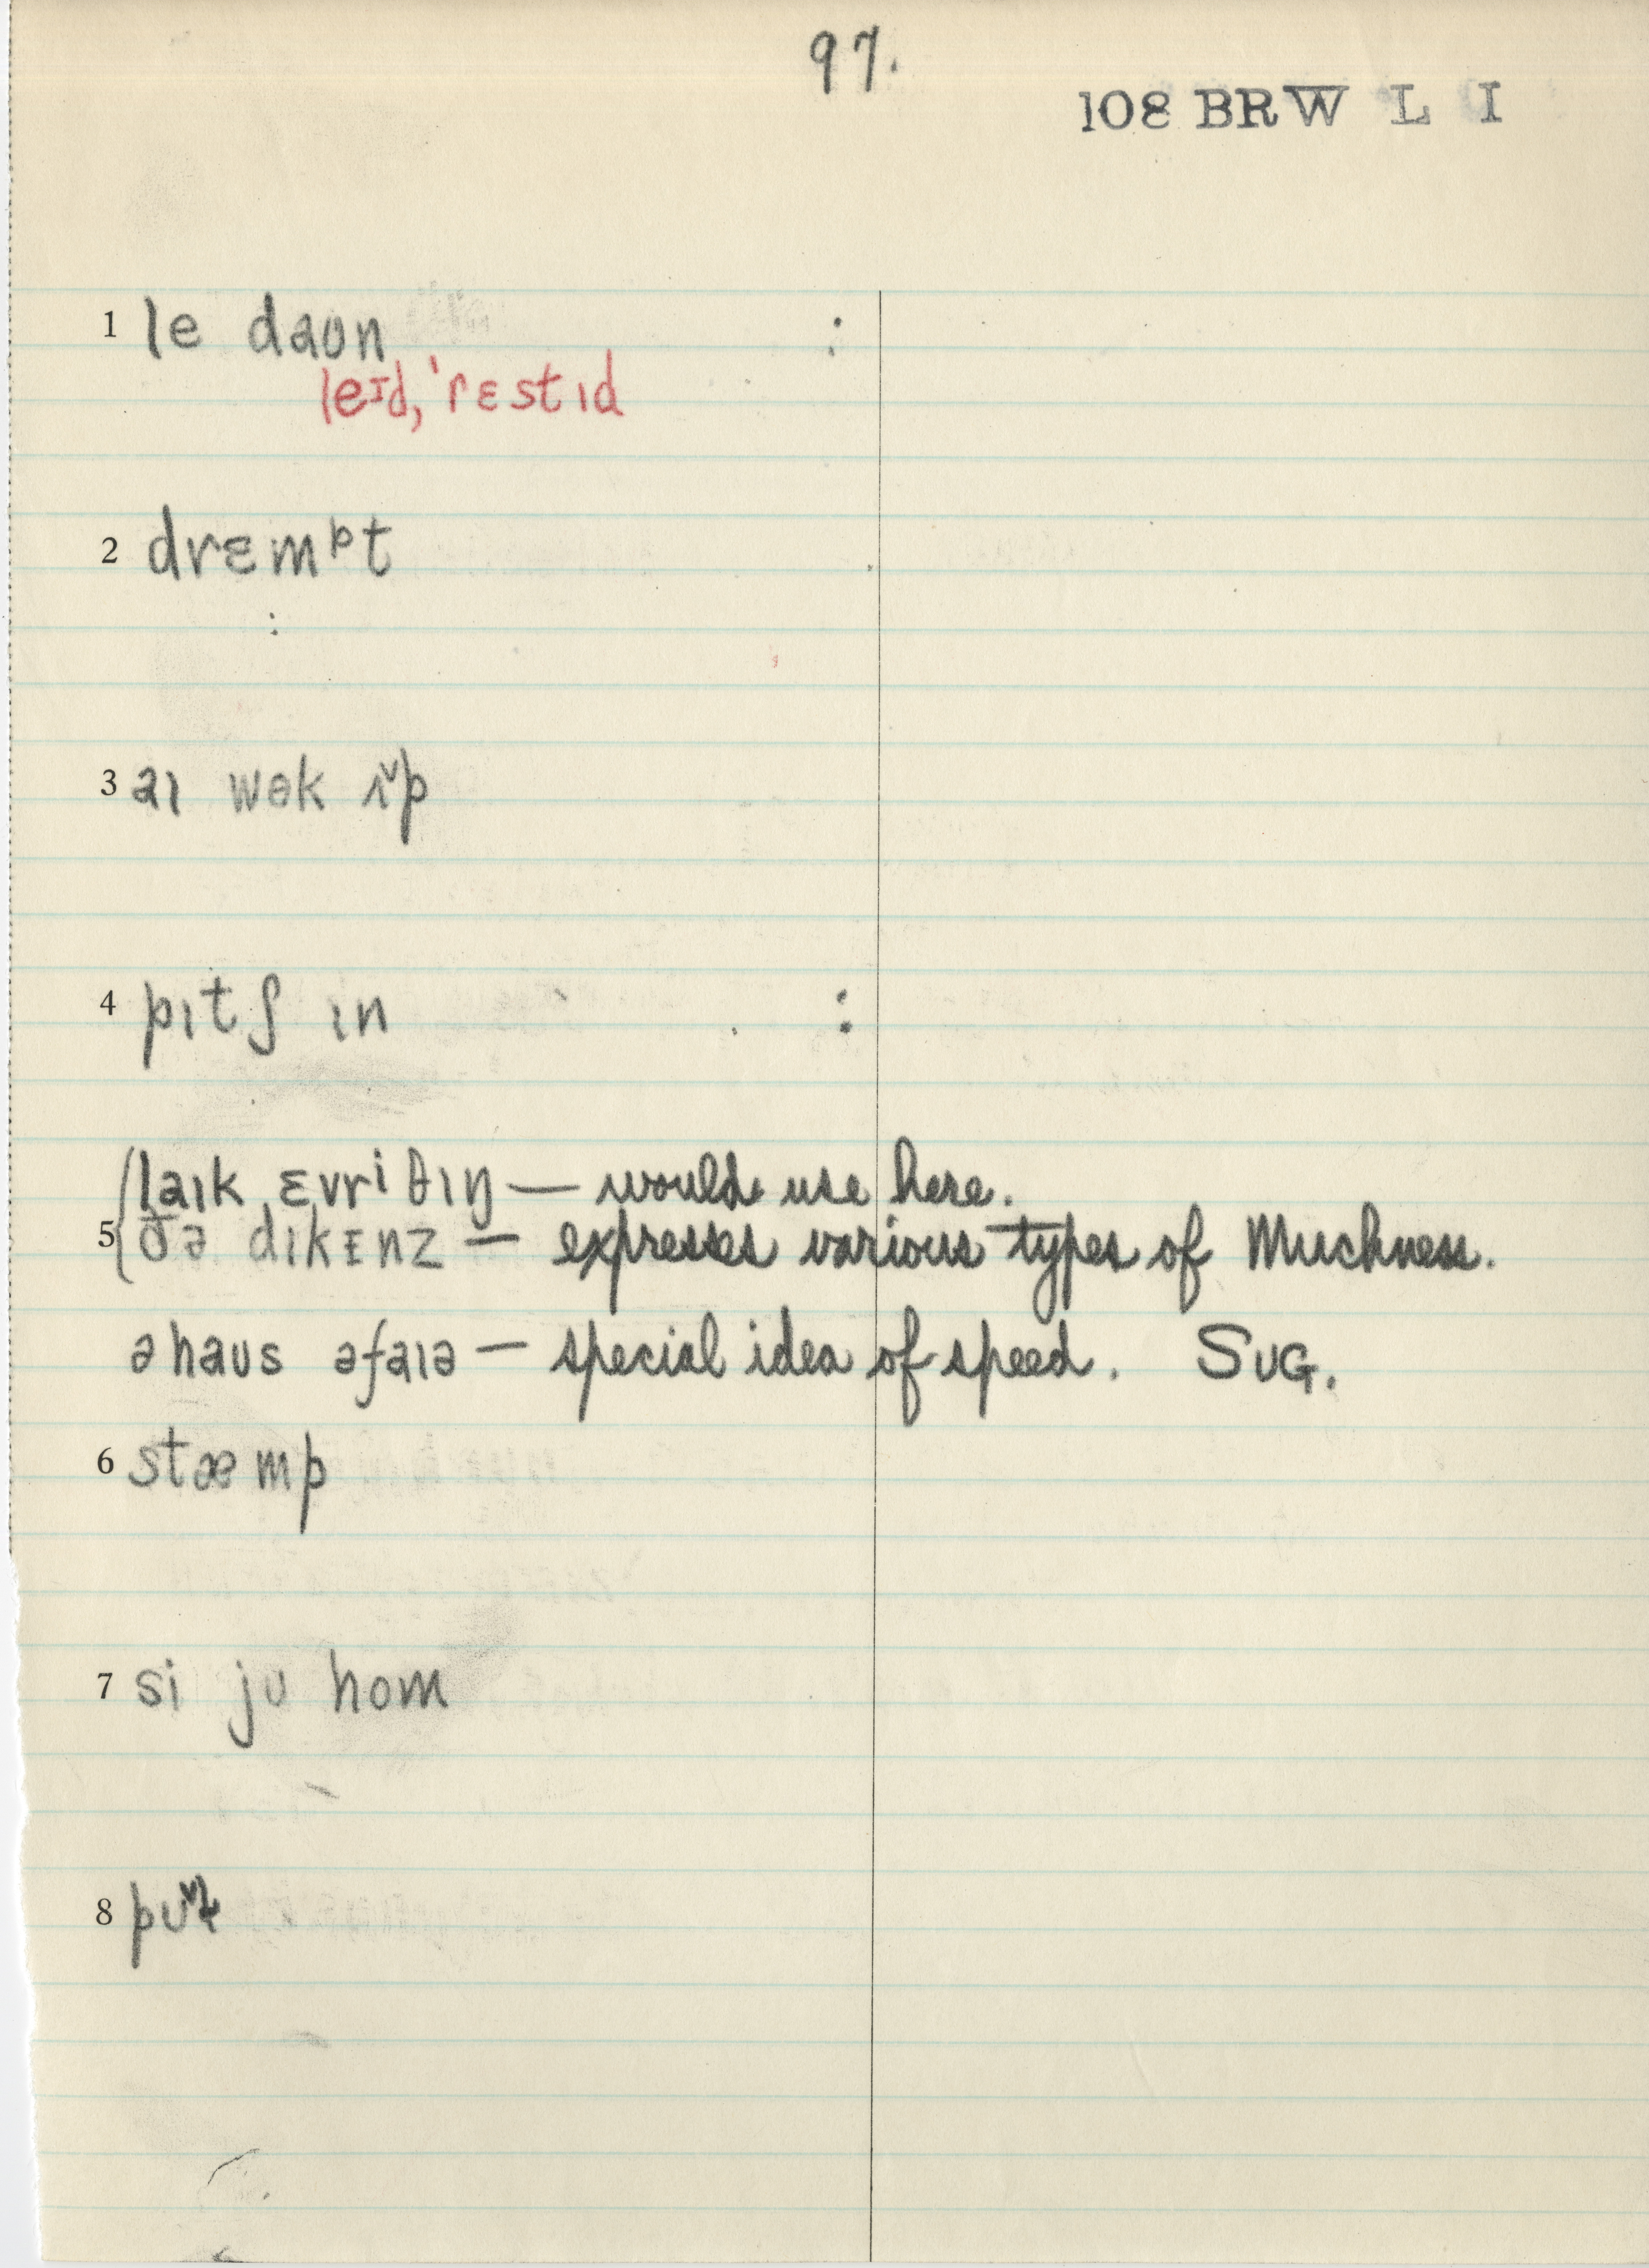 97.
108 BRW L I
1 le daʊn :
leɪd, ˈrɛstɪd
2 drɛmᵖt
3 aɪ wək ʌ˅p
4 pɪtʃ ɪn :
laɪk ɛvrɪ θɪŋ — would use here.
5 ðə dɪkɪnz — expresses various types of Muchness.
ə haʊs əfaɪə — special idea of speed. SUG.
6 stæmp
7 si jʊ hom
8